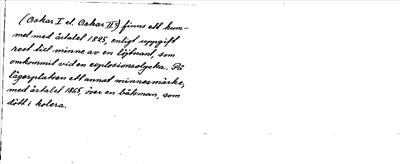 (Oskar I el. Oskar II?) finns ett kum-
mel med årtalet 1895, enligt uppgift
rest till minne av en löjtnant, som
omkommit vid en explosionsolycka. På
lägerplatsen ett annat minnesmärke,
med årtalet 1865, över en båtsman, som
dött i kolera.